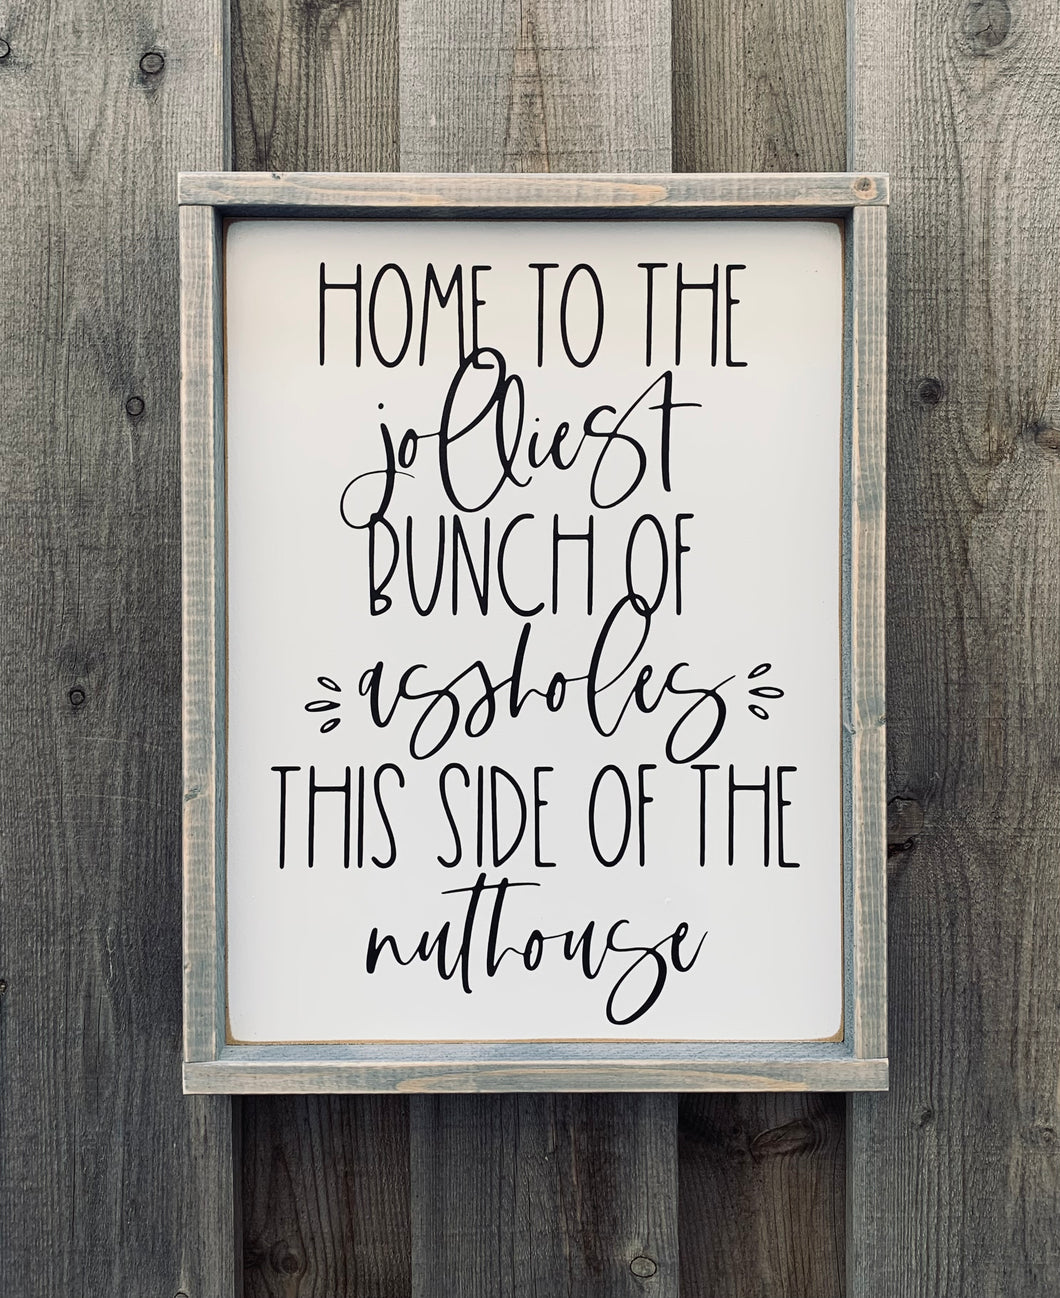 HOME TO THE
jolliest
BUNCH OF
assholes
THIS SIDE OF THE
nuthouse